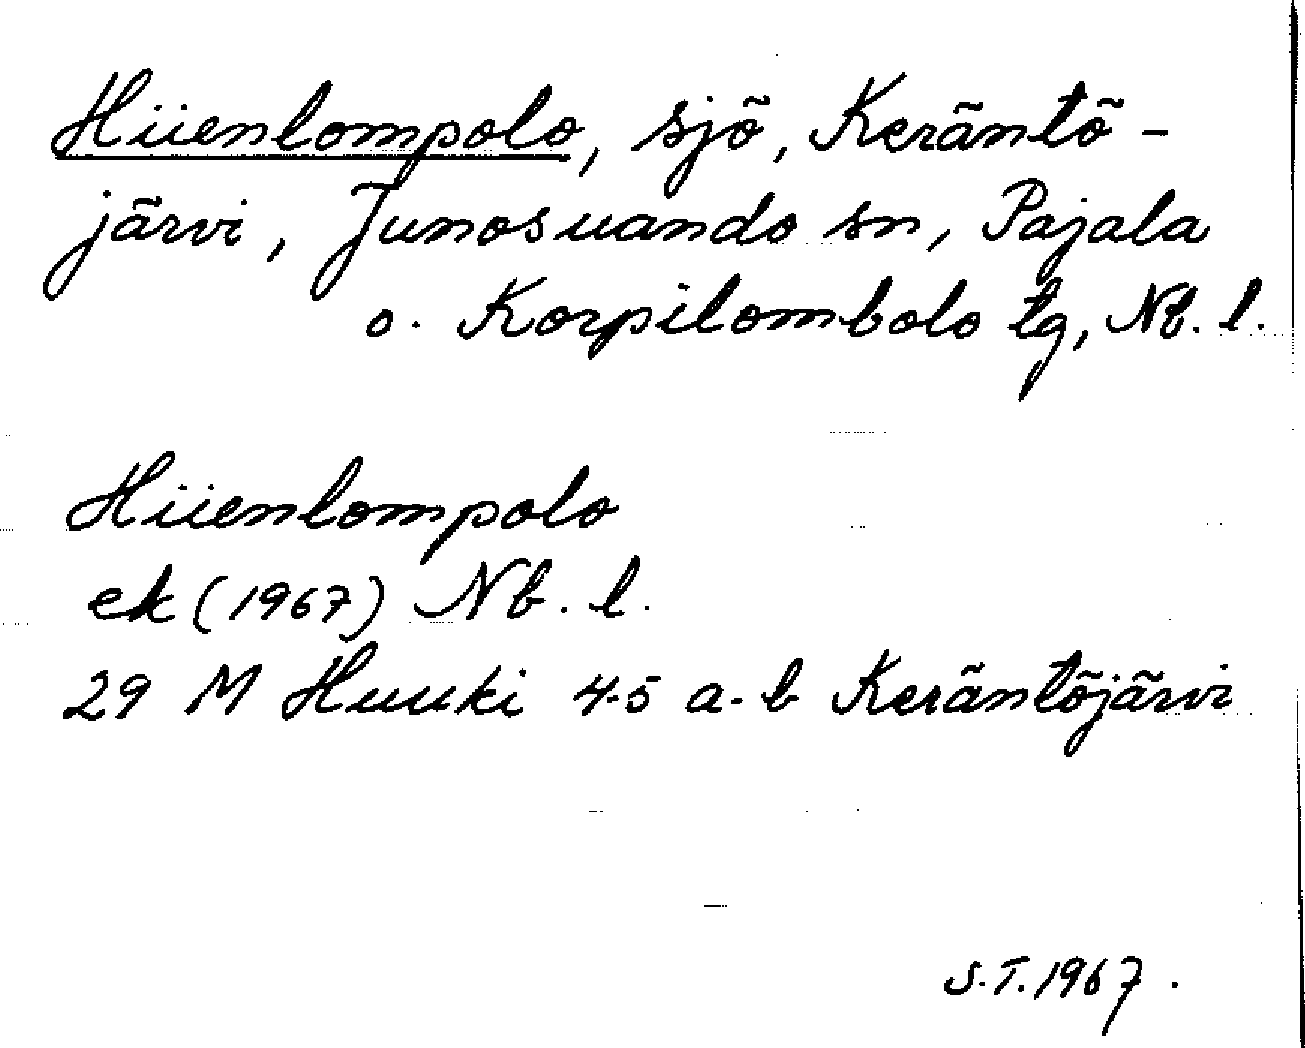 Hiienlompolo, sjö, Keräntö-
järvi, Junosuando sn, Pajala
o. Korpilombolo tg, Nb. l.
Hiienlompolo
ek (1967) Nb. l.
29 M Huuki 4-5 a-b Keräntöjärvi
S.T. 1967.